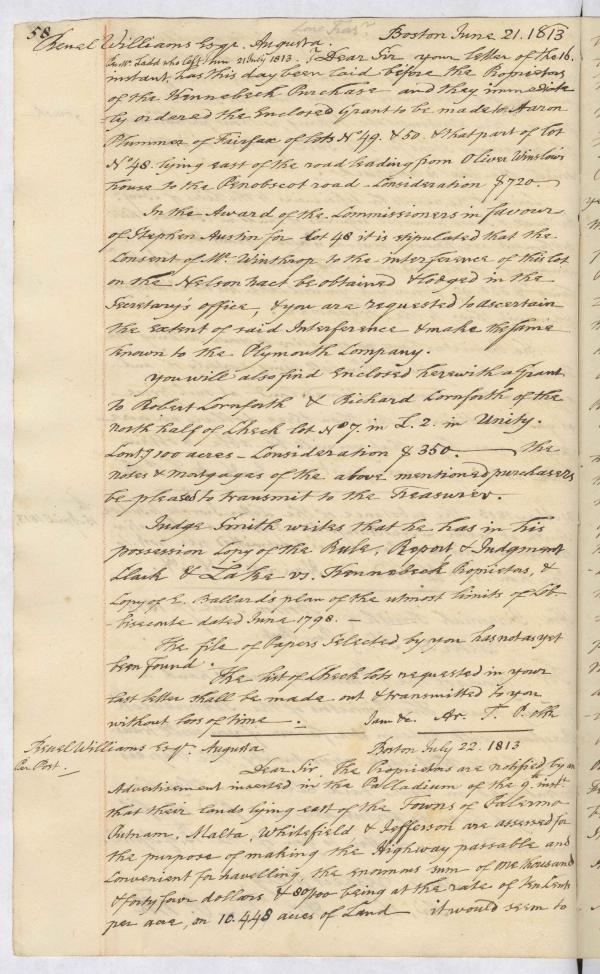 58
Boston June 21. 1813
Reuel Williams Esqr. Augusta.
Per Mr. Ladd who left this 21 July 1813. Dear Sir, your letter of the 16.
instant, has this day been laid before the Proprietors
of the Kennebeck Purchase and they immediate
ly ordered the Enclosed Grant to be made to Aaron
Plummer of Fairfax of lots No. 49. & 50. & that part of lot
No. 48. lying east of the road leading from Oliver Winslow's
house to the Penobscot road - Consideration $720. -
In the Award of the Commissioners in favour
of Stephen Austin for Lot 48 it is stipulated that the
Consent of Mr. Winthrop to the interference of this lot
on the Nelson tract be obtained & lodged in the
Secretary's office, & you are requested to ascertain
the extent of said Interference & make the same
known to the Plymouth Company.
You will also find Enclosed herewith a Grant
to Robert Cornforth & Richard Cornforth of the
north half of Check lot No. 7. in L. 2. in Unity.
Contg 100 acres - Consideration $350. - the
notes & mortgages of the above mentioned purchasers
be pleased to transmit to the Treasurer.
Judge Smith writes that he has in his
possession Copy of the Rule, Report & Judgment
Clark & Lake vs. Kennebeck Propietors, &
Copy of E. Ballard's plan of the utmost limits of Cob-
biseconte dated June 1798. -
The file of Papers Selected by you has not as yet
been found.
The list of Check lots requested in your
last letter shall be made out & transmitted to you
without loss of time. I am &c. Ar. T. P. &th
Reuel Williams Esqr. Augusta Boston July 22. 1813
Per Post.
Dear Sir, The Proprietors are notified by an
Advertisement inserted in the Palladium of the 9th. inst.
that their lands lying east of the Towns of Palermo
Putnam, Malta, Whitefield & Jefferson are assessed for
the purpose of making the Highway passable and
Convenient for travelling, the enormous sum of One thousand
& forty four dollars & 80/100 being at the rate of ten Cents
per acre, on 10.448 acres of Land it would seem to